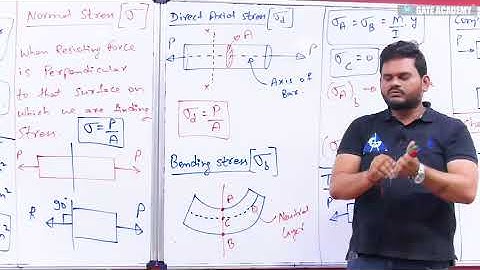 Normal Stress [σ]
When Resisting force
is Perpendicular
to that surface on
which we are finding
Stress.
σ = P/A
P
P
90°
R
P
Direct Axial stress [σd]
x
A
P
P
Axis of
Bar
x
σd = P/A
Bending stress [σb]
A
C
D
B
Neutral
layer
σA = σB = M.y/I
σC = 0
GATE ACADEMY
P